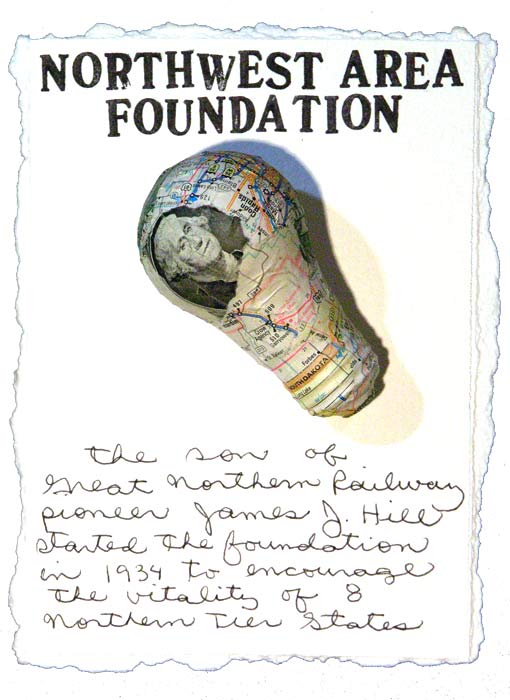 NORTHWEST AREA
FOUNDATION
SOUTH DAKOTA
the son of
Great Northern Railway
pioneer James J. Hill
started the foundation
in 1934 to encourage
the vitality of 8
Northern Tier States